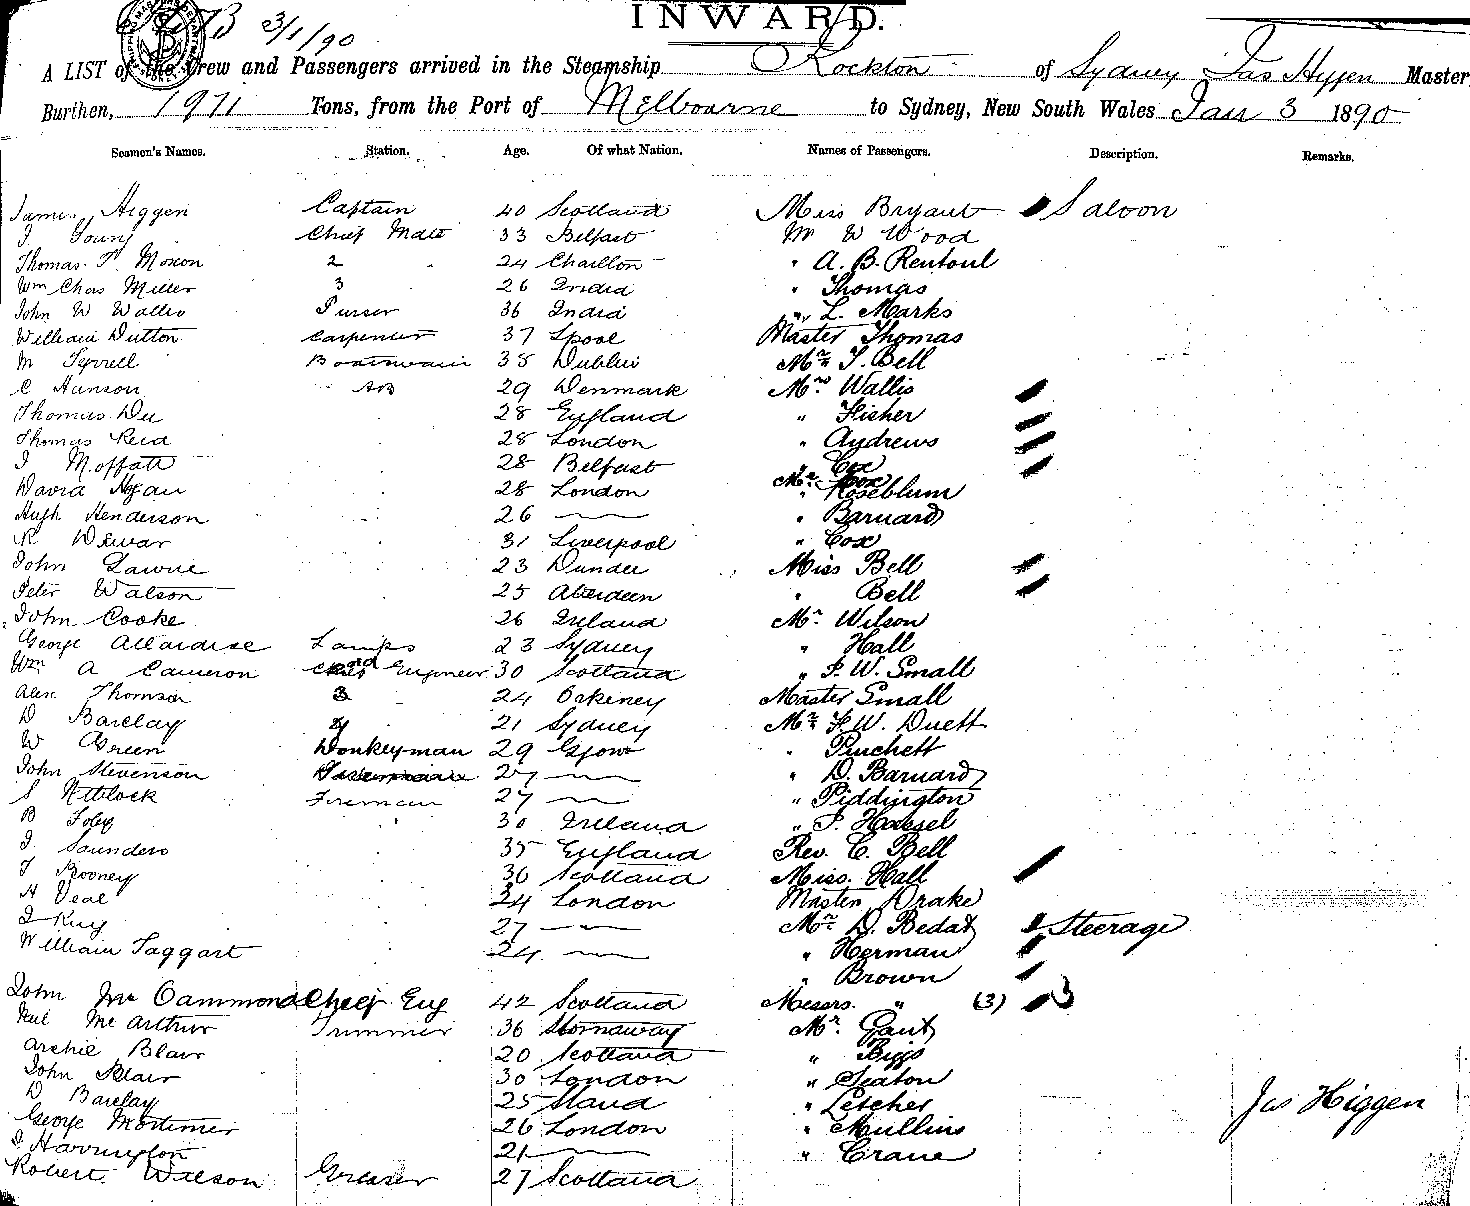 INWARD.
3/1/90
A LIST of the Crew and Passengers arrived in the Steamship Rockton of Sydney Jas Higgen Master
Burthen, 1971 Tons, from the Port of Melbourne to Sydney, New South Wales Jan 3 1890
Seamen's Names. Station. Age. Of what Nation. Names of Passengers. Description. Remarks.
James Higgen Captain 40 Scotland Miss Bryant Saloon
J Young Chief Mate 33 Belfast Mr W Wood
Thomas Moxon 2 24 " A. B. Rentoul
Wm Chas Miller 3 26 India " Thomas
John W Wallis Purser 36 India " L. Marks
William Dutton Carpenter 37 Lpool Master Thomas
M Tyrrell Boatswain 38 Dublin Mr J. Bell
C Hanson AB 29 Denmark Mrs Wallis
Thomas 28 England " Fisher
Thomas Reid 28 London " Andrews
J Moffatt 28 Belfast " Cox
David 28 London " Roseblum
Hugh Henderson 26 " Barnard
R Dewar 31 Liverpool " Cox
John 23 Dundee Miss Bell
Peter Watson 25 Aberdeen " Bell
John Cooke 26 Ireland Mr Wilson
George Allardise Lamps 23 Sydney " Hall
Wm A Cameron 2nd Engineer 30 Scotland " W. Small
Alex Thomson 3 24 Orkiney Master Small
D Barclay 4 21 Sydney Mr W. Duett
W Green Donkeyman 29 " Puchett
John Stevenson 27 " D. Barnard
S Fireman 27 " Piddington
B 30 Ireland "
J Saunders 35 England Rev. C. Bell
T Rooney 30 Scotland Miss. Hall
H Veal 24 London Master Drake
J King 27 Mr D. Steerage
William Taggart 24 " Herman
" Brown
John Mc Cammond Chief Eng 42 Scotland Messrs. " (3) 3
Neil Mc Arthur Trimmer 36 Stornaway Mr. Gant
Archie Blair 20 Scotland " Biggs
John Blair 30 London " Seaton
D Barclay 25 " Letcher
George Mortimer 26 London " Mullins
J Harrington 21 " Crane
Robert Watson Greaser 27 Scotland
Jas Higgen